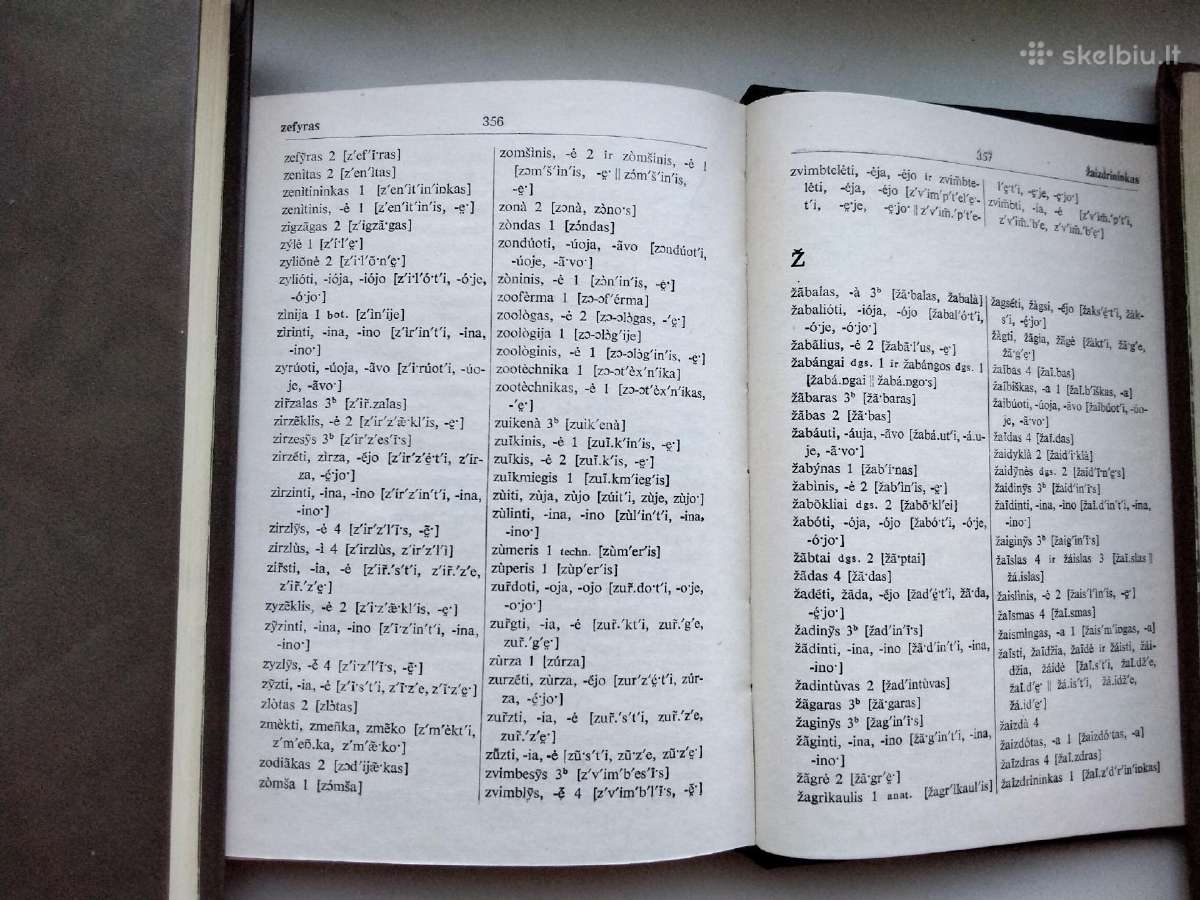 skelbiu.lt
zefyras
356
zefỹras 2 [z'ef'ī·ras]
zenìtas 2 [z'en'ìtas]
zenìtininkas 1 [z'en'ìt'in'inkas]
zenìtinis, -ė 1 [z'en'ìt'in'is, -ę·]
zigzãgas 2 [z'igzã·gas]
zýlė 1 [z'í·l'ę·]
zyliõnė 2 [z'i·l'õ·n'ę·]
zylióti, -iója, -iójo [z'i·l'ó·t'i, -ó·je,
-ó·jo·]
zìnija 1 bot. [z'ìn'ije]
zìrinti, -ina, -ino [z'ìr'in't'i, -ina,
-ino·]
zyrúoti, -úoja, -ãvo [z'i·rúot'i, -úo-
je, -ãvo·]
zir̃zalas 3ᵇ [z'ir̃.zalas]
zirzẽklis, -ė 2 [z'ir'z'æ̃·kl'is, -ę·]
zirzesỹs 3ᵇ [z'ir'z'es'ī·s]
zirzė́ti, zìrza, -ė́jo [z'ir'z'ę́·t'i, z'ìr-
za, -ę́·jo·]
zìrzinti, -ina, -ino [z'ìr'z'in't'i, -ina,
-ino·]
zirzlỹs, -ė̃ 4 [z'ir'z'l'ī·s, -ę̃·]
zirzlùs, -ì 4 [z'irzlùs, z'ir'z'l'ì]
zir̃sti, -ia, -ė [z'ir̃.'s't'i, z'ir̃.'z'e,
z'ir̃.'z'ę·]
zyzẽklis, -ė 2 [z'i·z'æ̃·kl'is, -ę·]
zỹzinti, -ina, -ino [z'ī·z'in't'i, -ina,
-ino·]
zyzlỹs, -ė̃ 4 [z'i·z'l'ī·s, -ę̃·]
zỹzti, -ia, -ė [z'ī·s't'i, z'ī·z'e, z'ī·z'ę·]
zlòtas 2 [zlòtas]
zmèkti, zmeñka, zmẽko [z'm'èkt'i,
z'm'eñ.ka, z'm'æ̃·ko·]
zodiãkas 2 [zɔd'ijæ̃·kas]
zòmša 1 [zómša]
zomšìnis, -ė 2 ir zòmšinis, -ė 1
[zɔm'š'ìn'is, -ę· || zóm'š'in'is,
-ę·]
zonà 2 [zɔnà, zɔ̀no·s]
zòndas 1 [zɔ́ndas]
zondúoti, -úoja, -ãvo [zɔndúot'i,
-úoje, -ã·vo·]
zòninis, -ė 1 [zɔ̀n'in'is, -ę·]
zoofèrma 1 [zɔ-ɔf'érma]
zoològas, -ė 2 [zɔ-ɔlògas, -'ę·]
zoològija 1 [zɔ-ɔlòg'ije]
zoològinis, -ė 1 [zɔ-ɔlòg'in'is, -ę·]
zootèchnika 1 [zɔ-ɔt'èx'n'ika]
zootèchnikas, -ė 1 [zɔ-ɔt'èx'n'ikas,
-'ę·]
zuikenà 3ᵇ [zuik'enà]
zuĩkinis, -ė 1 [zuĩ.k'in'is, -ę·]
zuĩkis, -ė 2 [zuĩ.k'is, -ę·]
zuĩkmiegis 1 [zuĩ.km'ieg'is]
zùiti, zùja, zùjo [zúit'i, zùje, zùjo·]
zùlinti, -ina, -ino [zùl'in't'i, -ina,
-ino·]
zùmeris 1 techn. [zùm'er'is]
zùperis 1 [zùp'er'is]
zur̃doti, -oja, -ojo [zur̃.do·t'i, -o·je,
-o·jo·]
zur̃gti, -ia, -ė [zur̃.'kt'i, zur̃.'g'e,
zur̃.'g'ę·]
zùrza 1 [zúrza]
zurzė́ti, zùrza, -ė́jo [zur'z'ę́·t'i, zúr-
za, -ę́·jo·]
zur̃zti, -ia, -ė [zur̃.'s't'i, zur̃.'z'e,
zur̃.'z'ę·]
zū̃zti, -ia, -ė [zū̃·s't'i, zū̃·z'e, zū̃·z'ę·]
zvimbesỹs 3ᵇ [z'v'im'b'es'ī·s]
zvimblỹs, -ė̃ 4 [z'v'im'b'l'ī·s, -ę̃·]
357
žaizdrininkas
zvimbtelėti, -ėja, -ėjo ir zvim̃bte-
lėti, -ėja, -ėjo [z'v'im'p't'el'ę·-
t'i, -ę·je, -ę·jo· || z'v'im̃.'p't'e-
l'ę·t'i, -ę·je, -ę·jo·]
zvim̃bti, -ia, -ė [z'v'im̃.'p't'i,
z'v'im̃.'b'e, z'v'im̃.'b'ę·]
Ž
žãbalas, -à 3ᵇ [žã·balas, žabalà]
žabalióti, -iója, -ójo [žabal'ó·t'i,
-ó·je, -ó·jo·]
žabãlius, -ė 2 [žabã·l'us, -ę·]
žabángai dgs. 1 ir žabángos dgs. 1
[žabá.ŋgai || žabá.ŋgo·s]
žãbaras 3ᵇ [žã·baras]
žãbas 2 [žã·bas]
žabáuti, -áuja, -ãvo [žabá.ut'i, -á.u-
je, -ã·vo·]
žabýnas 1 [žab'í·nas]
žabìnis, -ė 2 [žab'ìn'is, -ę·]
žabõkliai dgs. 2 [žabõ·kl'ei]
žabóti, -ója, -ójo [žabó·t'i, -ó·je,
-ó·jo·]
žãbtai dgs. 2 [žã·ptai]
žãdas 4 [žã·das]
žadė́ti, žãda, -ė́jo [žad'ę́·t'i, žã·da,
-ę́·jo·]
žadinỹs 3ᵇ [žad'in'ī·s]
žãdinti, -ina, -ino [žã·d'in't'i, -ina,
-ino·]
žadintùvas 2 [žad'intùvas]
žãgaras 3ᵇ [žã·garas]
žaginỹs 3ᵇ [žag'in'ī·s]
žãginti, -ina, -ino [žã·g'in't'i, -ina,
-ino·]
žãgrė 2 [žã·gr'ę·]
žagrìkaulis 1 anat. [žagr'ìkaul'is]
žagsė́ti, žàgsi, -ė́jo [žaks'ę́·t'i, žàk-
s'i, -ę́·jo·]
žàgti, žãgia, žãgė [žàkt'i, žã·g'e,
žã·g'ę·]
žaĩbas 4 [žaĩ.bas]
žaĩbiškas, -a 1 [žaĩ.b'iškas, -a]
žaibúoti, -úoja, -ãvo [žaibúot'i, -úo-
je, -ã·vo·]
žaĩdas 4 [žaĩ.das]
žaidyklà 2 [žaid'i·klà]
žaidỹnės dgs. 2 [žaid'ī·n'ę·s]
žaidinỹs 3ᵇ [žaid'in'ī·s]
žaĩdinti, -ina, -ino [žaĩ.d'in't'i, -ina,
-ino·]
žaiginỹs 3ᵇ [žaig'in'ī·s]
žaĩslas 4 ir žáislas 3 [žaĩ.slas ||
žá.islas]
žaislìnis, -ė 2 [žais'l'ìn'is, -ę·]
žaĩsmas 4 [žaĩ.smas]
žaismìngas, -a 1 [žais'm'íngas, -a]
žaĩsti, žaĩdžia, žaĩdė ir žáisti, žái-
džia, žáidė [žaĩ.s't'i, žaĩ.dž'e,
žaĩ.d'ę· || žá.is't'i, žá.idž'e,
žá.id'ę·]
žaizdà 4
žaizdótas, -a 1 [žaizdó·tas, -a]
žaĩzdras 4 [žaĩ.zdras]
žaĩzdrininkas 1 [žaĩ.z'd'r'in'inkas]